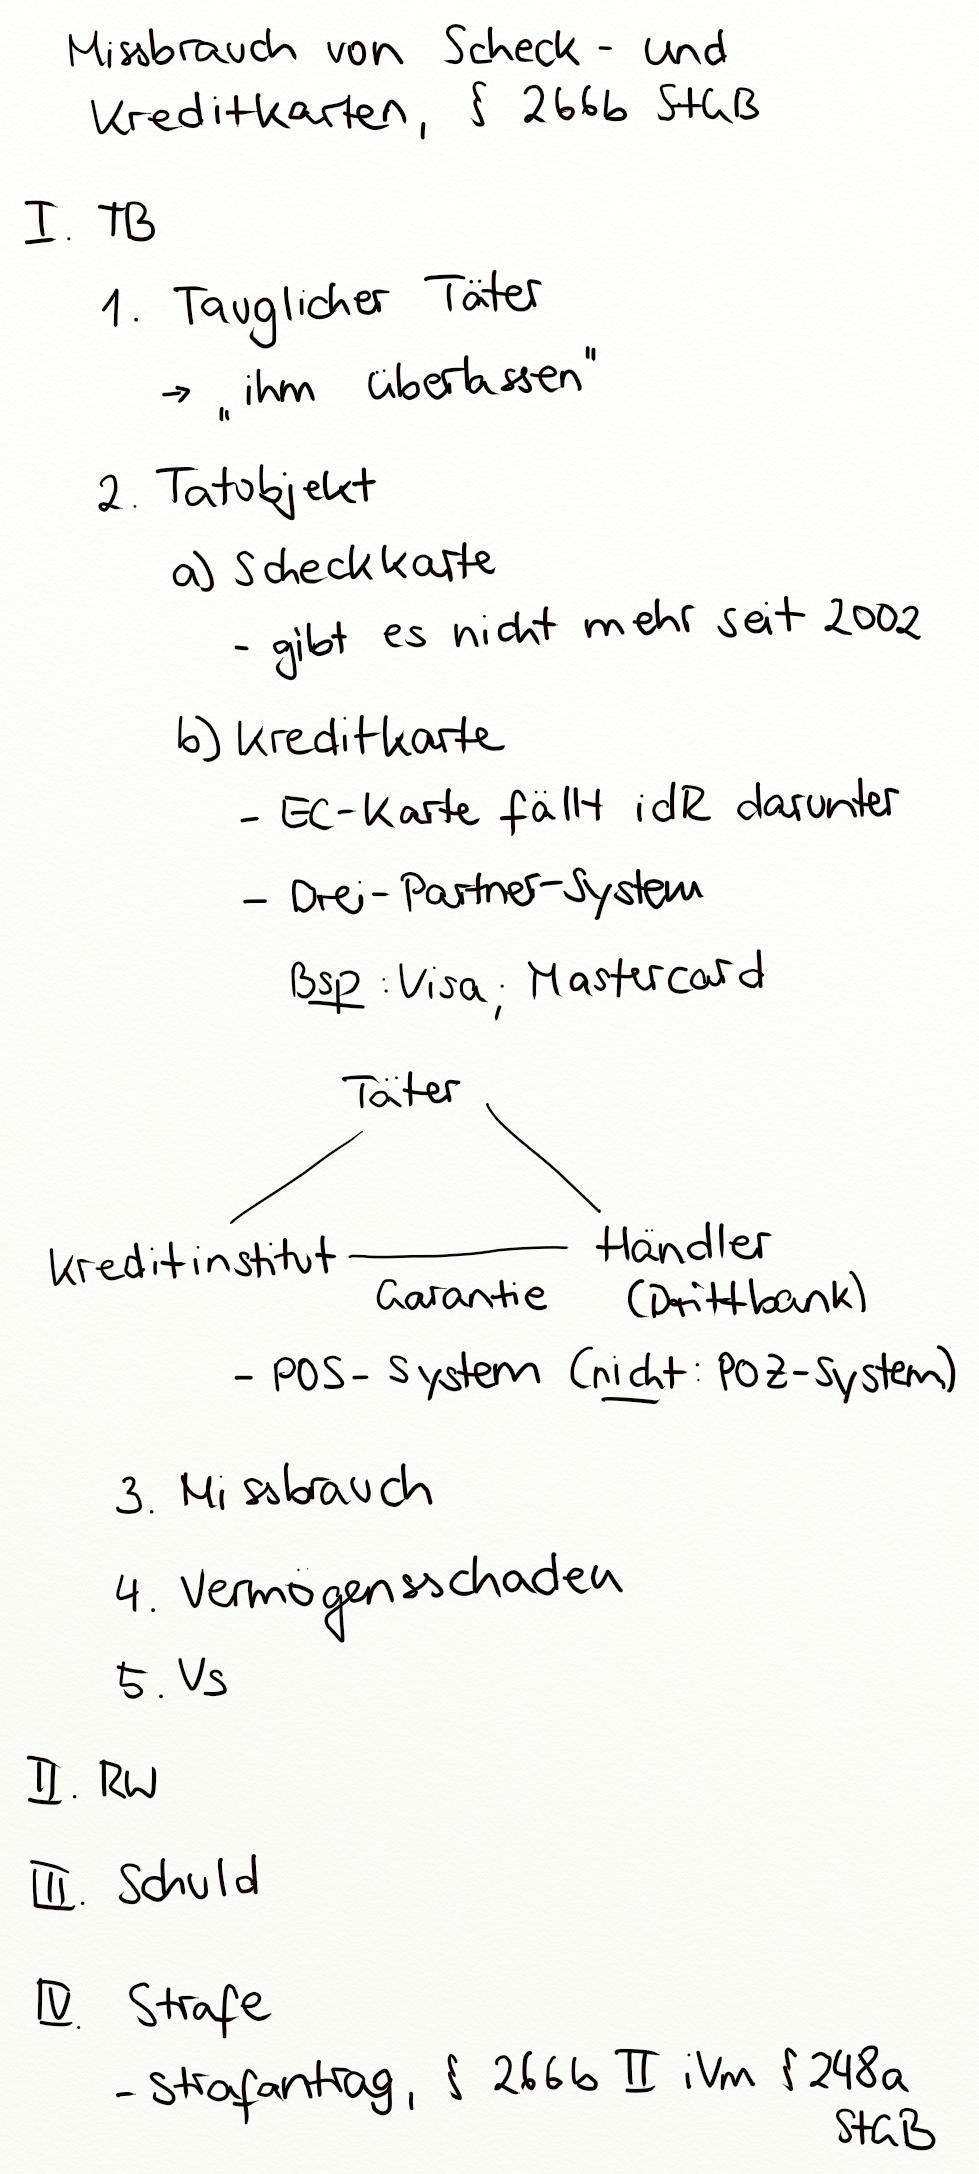 Missbrauch von Scheck- und
Kreditkarten, § 266b StGB
I. TB
1. Tauglicher Täter
→ „ihm überlassen"
2. Tatobjekt
a) Scheckkarte
- gibt es nicht mehr seit 2002
b) Kreditkarte
- EC-Karte fällt idR darunter
- Drei-Partner-System
Bsp: Visa; Mastercard
Täter
Kreditinstitut Händler
Garantie (Drittbank)
- POS-System (nicht: POZ-System)
3. Missbrauch
4. Vermögensschaden
5. Vs
II. RW
III. Schuld
IV. Strafe
- Strafantrag, § 266b II iVm § 248a
StGB